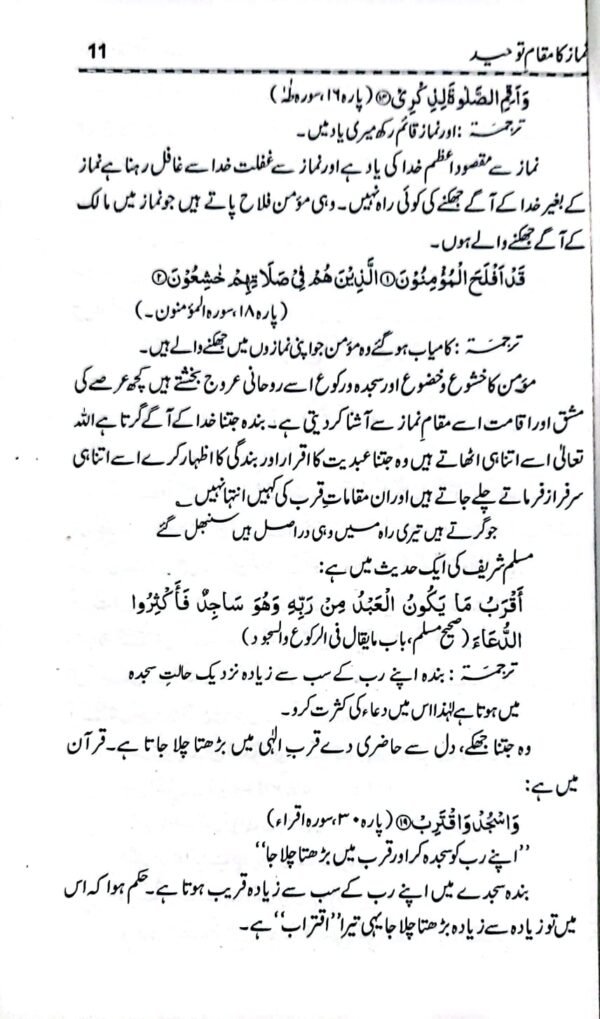 نماز کا مقامِ توحید 11
وَاَقِمِ الصَّلٰوةَ لِذِكْرِیْ ﴿۱۴﴾ (پارہ ۱۶، سورہ طٰہٰ)
ترجمۃ : اور نماز قائم رکھ میری یاد میں۔
نماز سے مقصود اعظم خدا کی یاد ہے اور نماز سے غفلت خدا سے غافل رہنا ہے نماز
کے بغیر خدا کے آگے جھکنے کی کوئی راہ نہیں۔ وہی مؤمن فلاح پاتے ہیں جو نماز میں مالک
کے آگے جھکنے والے ہوں۔
قَدْ اَفْلَحَ الْمُؤْمِنُوْنَ ﴿۱﴾ الَّذِیْنَ هُمْ فِیْ صَلَاتِهِمْ خٰشِعُوْنَ ﴿۲﴾
(پارہ ۱۸، سورہ المؤمنون۔)
ترجمۃ : کامیاب ہو گئے وہ مؤمن جو اپنی نمازوں میں جھکنے والے ہیں۔
مؤمن کا خشوع و خضوع اور سجدہ و رکوع اسے روحانی عروج بخشتے ہیں کچھ عرصے کی
مشق اور اقامت اسے مقامِ نماز سے آشنا کر دیتی ہے۔ بندہ جتنا خدا کے آگے گرتا ہے اللہ
تعالیٰ اسے اتنا ہی اٹھاتے ہیں وہ جتنا عبدیت کا اقرار اور بندگی کا اظہار کرے اسے اتنا ہی
سرفراز فرماتے چلے جاتے ہیں اور ان مقاماتِ قرب کی کہیں انتہا نہیں ؎
جو گرتے ہیں تیری راہ میں وہی دراصل ہیں سنبھل گئے
مسلم شریف کی ایک حدیث میں ہے:
أَقْرَبُ مَا يَكُونُ الْعَبْدُ مِنْ رَبِّهِ وَهُوَ سَاجِدٌ فَأَكْثِرُوا
الدُّعَاءَ (صحیح مسلم، باب ما یقال فی الرکوع والسجود)
ترجمۃ : بندہ اپنے رب کے سب سے زیادہ نزدیک حالتِ سجدہ
میں ہوتا ہے لہٰذا اس میں دعاء کی کثرت کرو۔
وہ جتنا جھکے، دل سے حاضری دے قربِ الٰہی میں بڑھتا چلا جاتا ہے۔ قرآن
میں ہے:
وَاسْجُدْ وَاقْتَرِبْ ﴿۱۹﴾ (پارہ ۳۰، سورہ اقراء)
’’اپنے رب کو سجدہ کر اور قرب میں بڑھتا چلا جا‘‘
بندہ سجدے میں اپنے رب کے سب سے زیادہ قریب ہوتا ہے۔ حکم ہوا کہ اس
میں تو زیادہ سے زیادہ بڑھتا چلا جا یہی تیرا ’’اقتراب‘‘ ہے۔